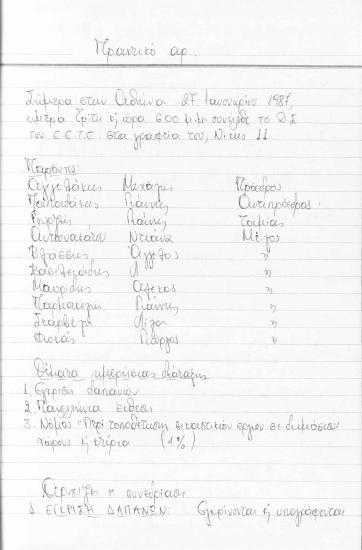 Πρακτικό αρ.
Σήμερα στην Αθήνα 27 Ιανουαρίου 1987,
ημέρα Τρίτη κ ώρα 6.00 μ.μ. συνήλθε το Δ.Σ
του Ε.Ε.Τ.Ε. στα γραφεία του, Νίκης 11
Παρόντες:
Αγγελάκης Μιχάλης Πρόεδρος
Παπαδάκης Γιάννης Αντιπρόεδρος
Γουρζής Γιάννης Ταμίας
Αντωνακάτου Ντιάνα Μέλος
Βλάσσης Άγγελος "
Βασιλειάδης Λ "
Μαυρίδης Αλέκος "
Παρμακέλης Γιάννης "
Σκάρβελη Λίζα "
Φωκάς Γιώργος "
Θέματα ημερήσιας διάταξης
1. Έγκριση δαπανών
2. Πανελλήνια έκθεση
3. Νόμος "Περί τοποθέτησης εικαστικών έργων σε δημόσιους
χώρους κ κτίρια (1%)
Αρχίζει η συνεδρίαση
1. ΕΓΚΡΙΣΗ ΔΑΠΑΝΩΝ: Εγκρίνονται κ υπογράφονται